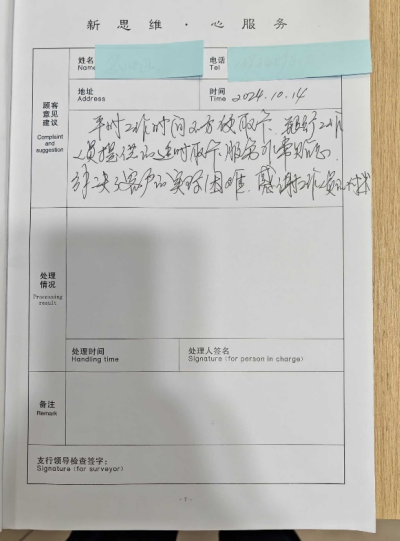 新思维·心服务
姓名
Name
电话
Tel
地址
Address
时间
Time 2024.10.14
顾客
意见
建议
Complaint
and
suggestion
平时工作时间不方便取卡,
工作
人员提供的延时取卡服务非常贴心,
解决了客户的实际困难,感谢工作人员的
处理
情况
Processing
result
处理时间
Handling time
处理人签名
Signature (for person in charge)
备注
Remark
支行领导检查签字:
Signature (for surveyor)
- 7 -